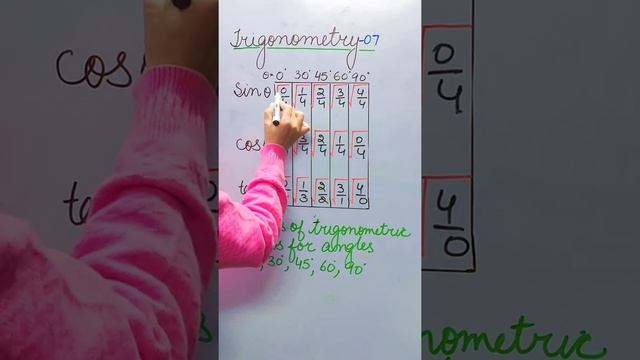 Trigonometry-07
θ→0° 30° 45° 60° 90°
Sin θ √0/4 √1/4 √2/4 √3/4 √4/4
cos √3/4 √2/4 √1/4 √0/4
√1/3 √2/2 √3/1 √4/0
of trigonometric
for angles
30°, 45°, 60°, 90°